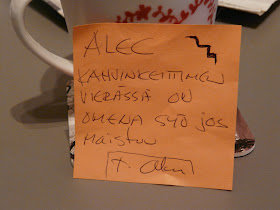 ALEC
KAHVINKEITTIMEN
VIERÄSSÄ ON
OMENA SYÖ JOS
MAISTUU
T. Aku